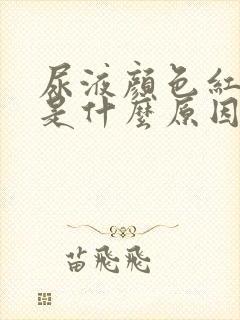 尿液顏色紅
是什麼原因
苗飛飛